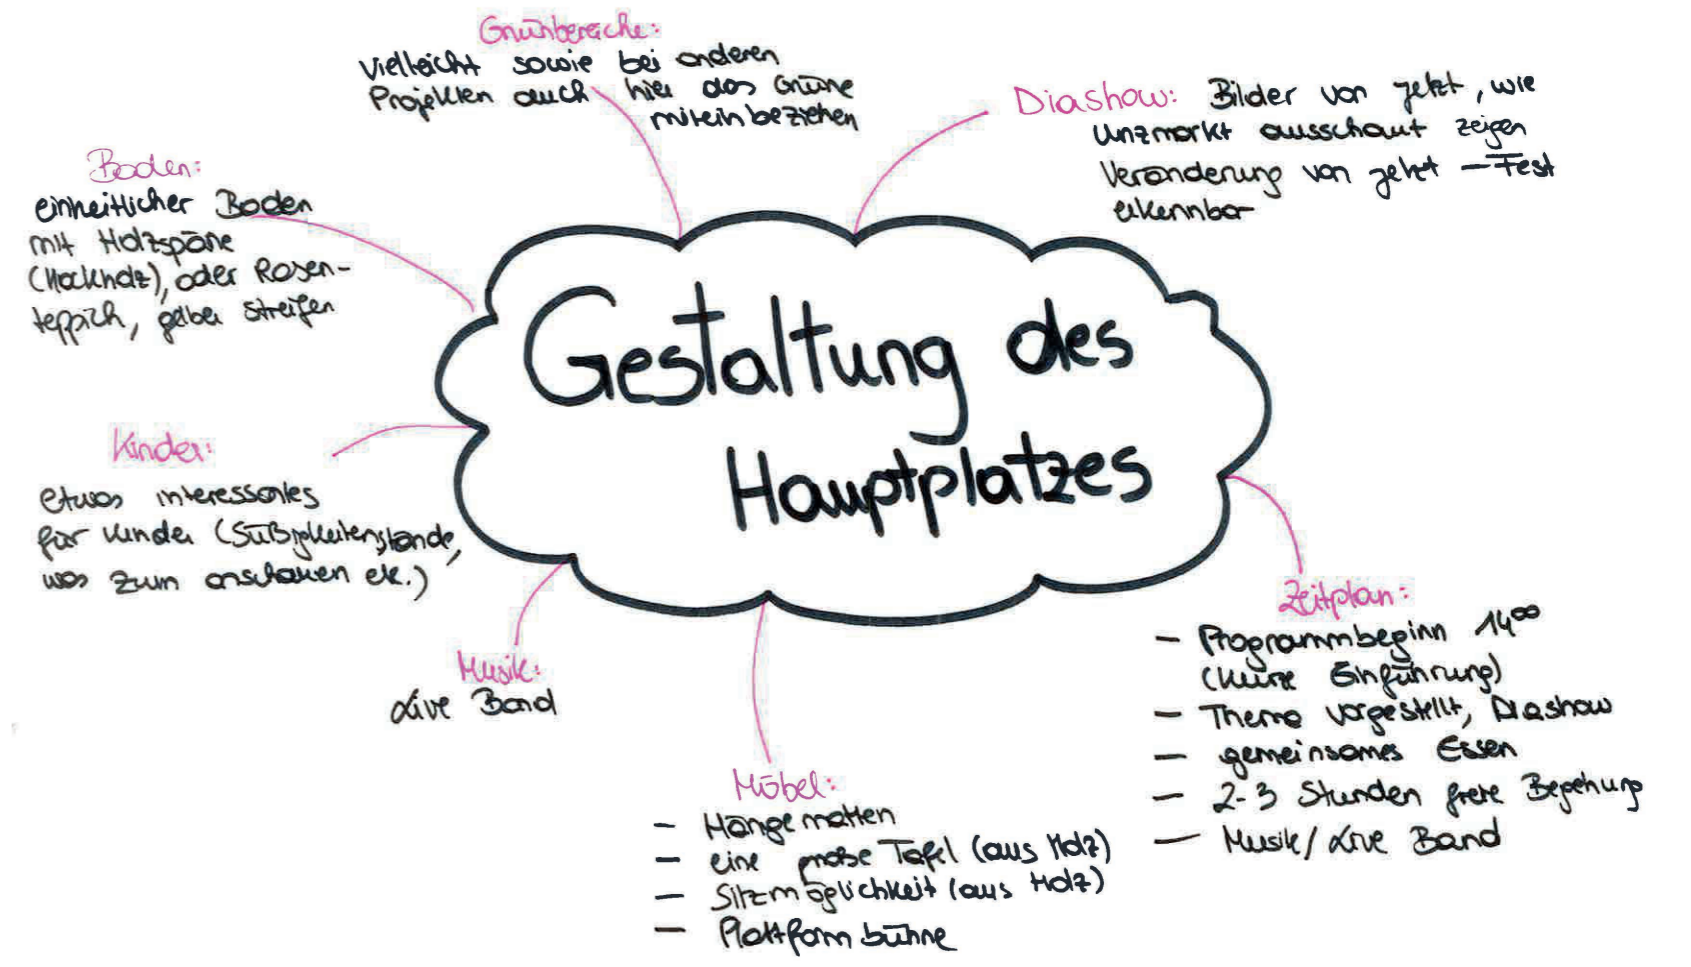 Grünbereiche:
vielleicht sowie bei anderen
Projekten auch hier das Grüne
miteinbeziehen
Diashow: Bilder von jetzt, wie
Unzmarkt ausschaut zeigen
Veränderung von jetzt – Fest
erkennbar
Boden:
einheitlicher Boden
mit Holzspäne
(Hackholz), oder Rasen-
teppich, gelber Streifen
Gestaltung des
Hauptplatzes
Kinder:
etwas interessantes
für Kinder (Süßigkeitenstände,
was zum anschauen etc.)
Musik:
Live Band
Möbel:
- Hängematten
- eine große Tafel (aus Holz)
- Sitzmöglichkeit (aus Holz)
- Plattformbühne
Zeitplan:
- Programmbeginn 14⁰⁰
(kurze Einführung)
- Thema vorgestellt, Diashow
- gemeinsames Essen
- 2-3 Stunden freie Begehung
- Musik/Live Band